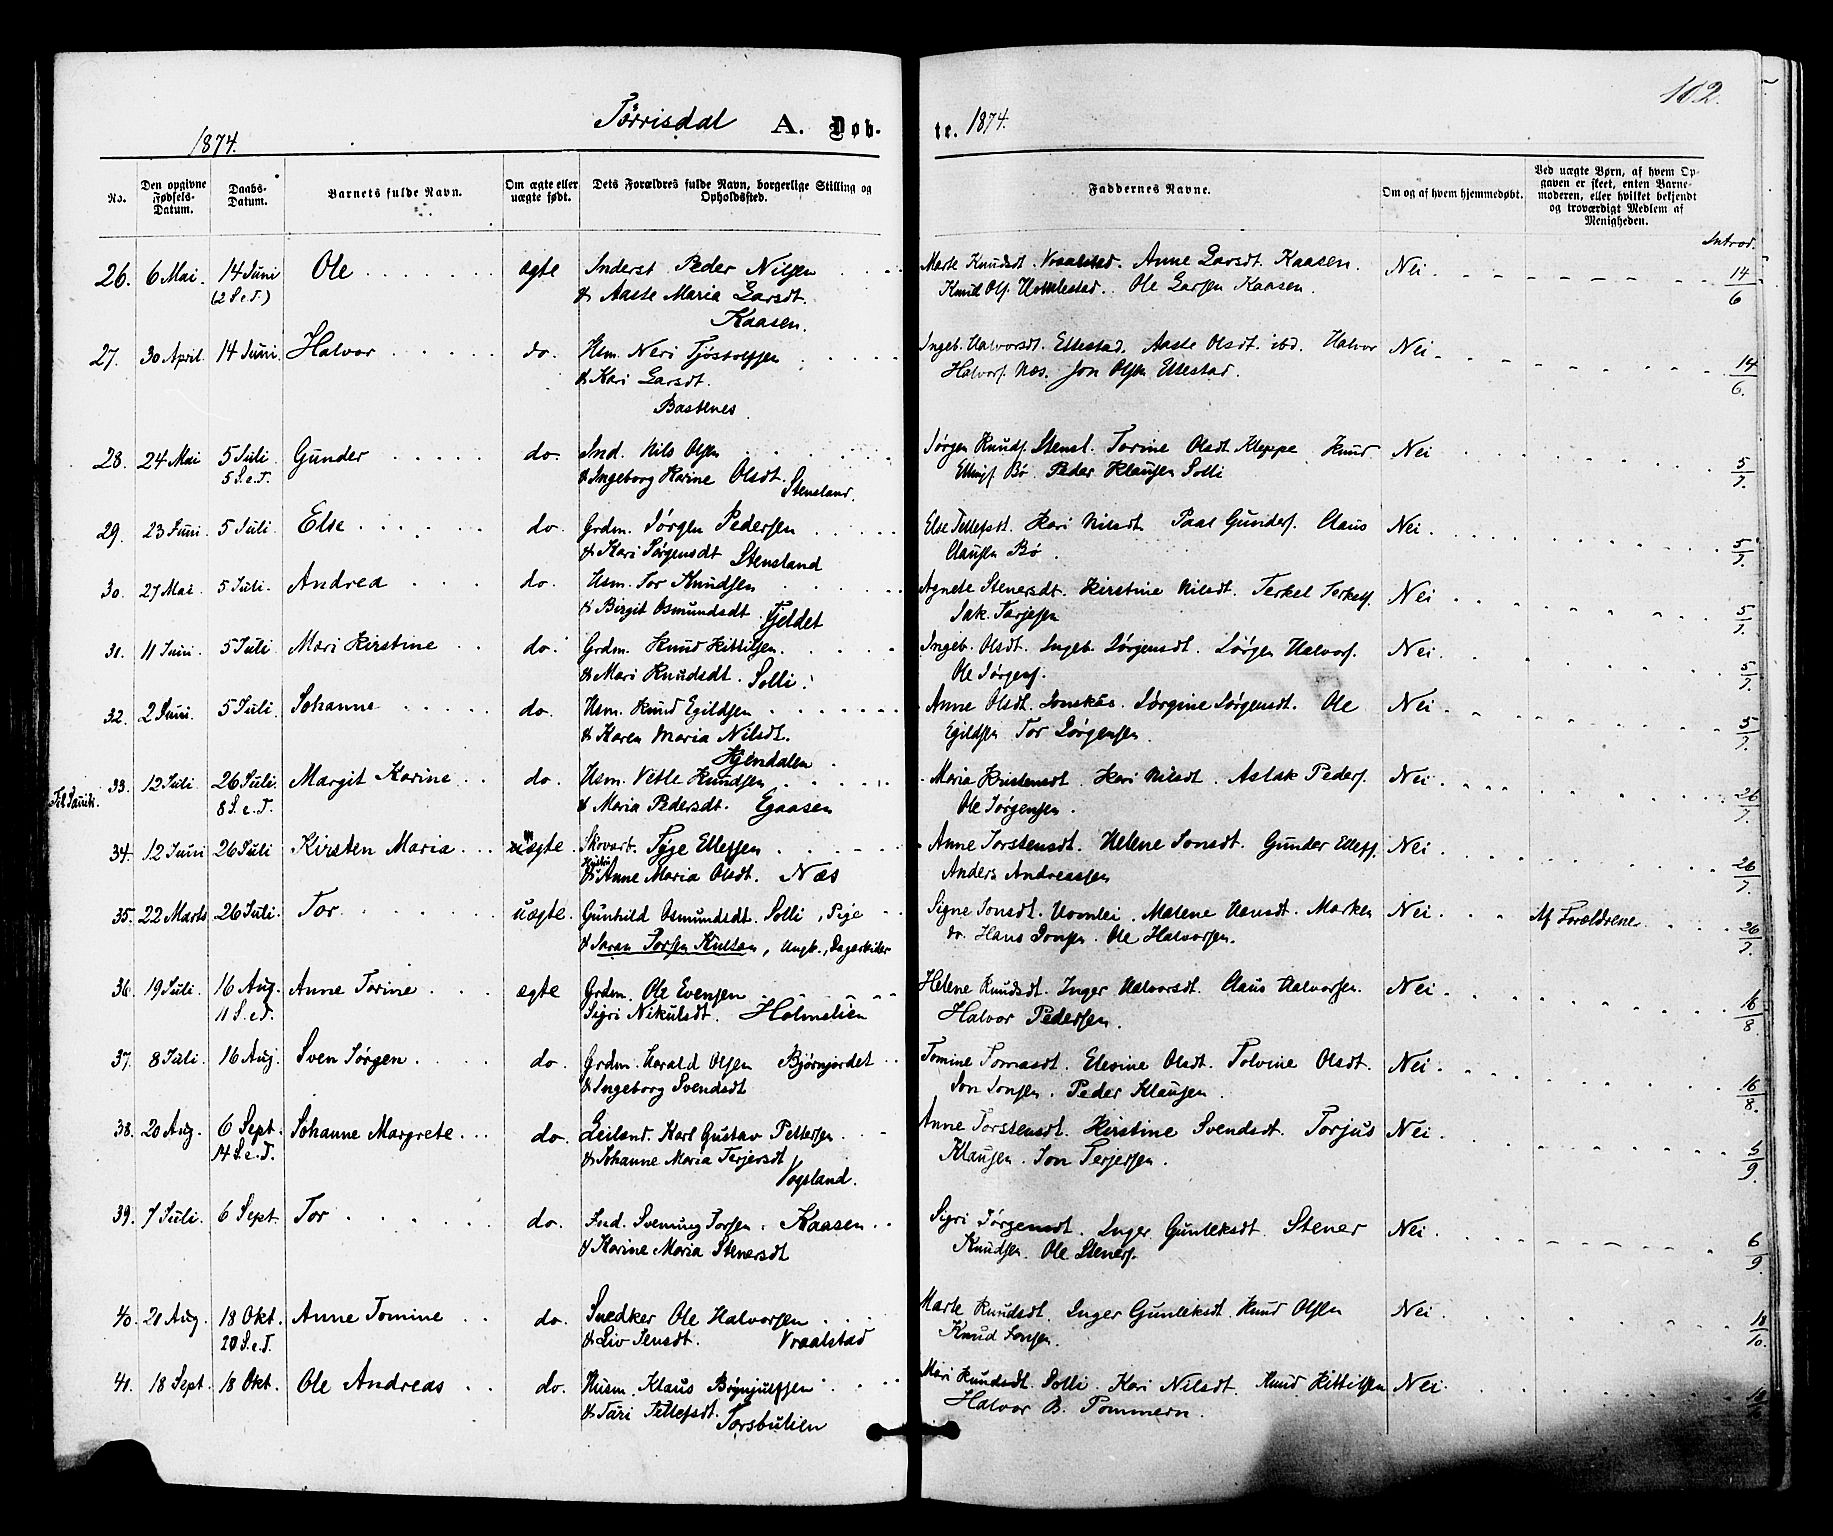 102.
Tørrisdal A. Døb-te. 1874.
1874.
No. Den opgivne Fødsels-Datum. Daabs-Datum. Barnets fulde Navn. Om ægte eller uægte født. Dets Forældres fulde Navn, borgerlige Stilling og Opholdssted. Faddernes Navne. Om og af hvem hjemmedøbt. Ved uægte Børn, af hvem Opgaven er skeet, enten Barnemoderen, eller hvilket bekjendt og troværdigt Medlem af Menigheden.
Introd.
26. 6 Mai 14 Juni Ole ægte Inderst Peder Nilsen Marte Knudsdt. Vraalstad. Anne Larsdt. Kaasen. Nei 14/6
(2 S.e.T.) & Aaste Maria Larsdt. Knud Ols. Ole Larsen Kaasen.
Kaasen.
27. 30 April. 14 Juni Halvor do. Hsm. Neri Tjøstolfsen Ingeb. Halvorsdt. Ettestad. Aaste Olsdt. ibd. Halvor Nei 14/6.
& Kari Larsdt. Halvors. Næs. Jon Olsen Ettestad.
Bastenes
28. 24 Mai 5 Juli Gunder do. Ind. Nils Olsen Jørgen Knuds. Stensl. Torine Olsdt. Kleppe. Knud Nei 5/7.
5 S.e.T. & Ingeborg Karine Olsdt. Bø. Peder Klausen Solli
Stensland.
29. 23 Juni 5 Juli. Else do. Grdm. Jørgen Pedersen Else Tellefsdt. Kari Nilsdt. Paal Gunders. Claus Nei 5/7.
& Kari Jørgensdt Stensland Clausen Bø.
30. 27 Mai 5 Juli. Andrea do. Hsm. Tor Knudsen Agnete Stenersdt. Kirstine Nilsdt. Terkel Terkels. Nei 5/7.
& Birgit Osmundsdt. Fjeldet Isak Tarjesen
31. 11 Juni 5 Juli Mari Kirstine do. Grdm. Knud Kittilsen. Ingeb. Olsdt. Ingeb. Jørgensdt. Jørgen Halvors. Nei 5/7.
& Mari Knudsdt. Solli. Ole Jørgens.
32. 2 Juni. 5 Juli. Johanne do. Hsm. Knud Egildsen Anne Olsdt. Jonskås. Jørgine Jørgensdt. Ole Nei 5/7.
& Karen Maria Nilsdt. Egildsen Tor Jørgensen.
Hjendalen.
33. 12 Juli 26 Juli. Margit Karine do. Hsm. Vetle Knudsen Maria Kristensdt. Kari Nilsdt. Aslak Peders. Nei 26/7.
8 S.e.T. & Maria Pedersdt. Egaasen Ole Jørgensen.
34. 12 Juni 26 Juli Kirsten Maria ægte Tyge Ellefsen Anne Torstensdt. Helene Jonsdt. Gunder Ellefs. Nei. 26/7.
& Anne Maria Olsdt. Næs Anders Andreassen
35. 22 Marts 26 Juli. Tor uægte. Gunhild Osmundsdt. Solli, Pige Signe Jonsdt. Malene Hansdt. Marken Nei. Af Forældrene 26/7.
& Torsen, Ungk., Dagarbeider do. Hans Jonsen. Ole Halvorsen.
36. 19 Juli. 16 Aug. Anne Torine ægte Grdm. Ole Evensen Helene Knudsdt. Inger Halvorsdt. Claus Halvorsen. Nei 16/8
11 S.e.T. Sigri Nikulsdt. Holmelien Halvor Pedersen.
37. 8 Juli 16 Aug. Sven Jørgen do. Grdm. Harald Olsen Bjørnjordet Tomine Tomasdt. Elevine Olsdt. Tolvine Olsdt. Nei 16/8.
& Ingeborg Svendsdt Jon Jonsen. Peder Klausen.
38. 20 Aug. 6 Sept. Johanne Margrete do. Leiland. Karl Gustav Pettersen Anne Torstensdt. Kirstine Svendsdt. Torjus Nei 5/9.
14 S.e.T. & Johanne Maria Terjersdt Klausen. Jon Terjersen.
Vogsland.
39. 7 Juli. 6 Sept. Tor do. Ind. Svenung Torsen. Kaasen Sigri Jørgensdt. Inger Gunleksdt. Stener Nei 6/9.
& Karine Maria Stenersdt Knudsen. Ole Steners.
40. 20 Aug. 18 Okt. Anne Tomine do. Snedker Ole Halvorsen Marte Knudsdt. Inger Gunleksdt. Knud Olsen Nei 18/10
20 S.e.T. & Liv Jensdt. Vraalstad Knud Jonsen.
41. 18 Sept. 18 Okt. Ole Andreas do. Husm. Klaus Brynjulfsen Mari Knudsdt. Solli. Kari Nilsdt. Knud Kittilsen Nei.
& Tari Tellefsdt. Torsbulien Halvor B. Tommern.